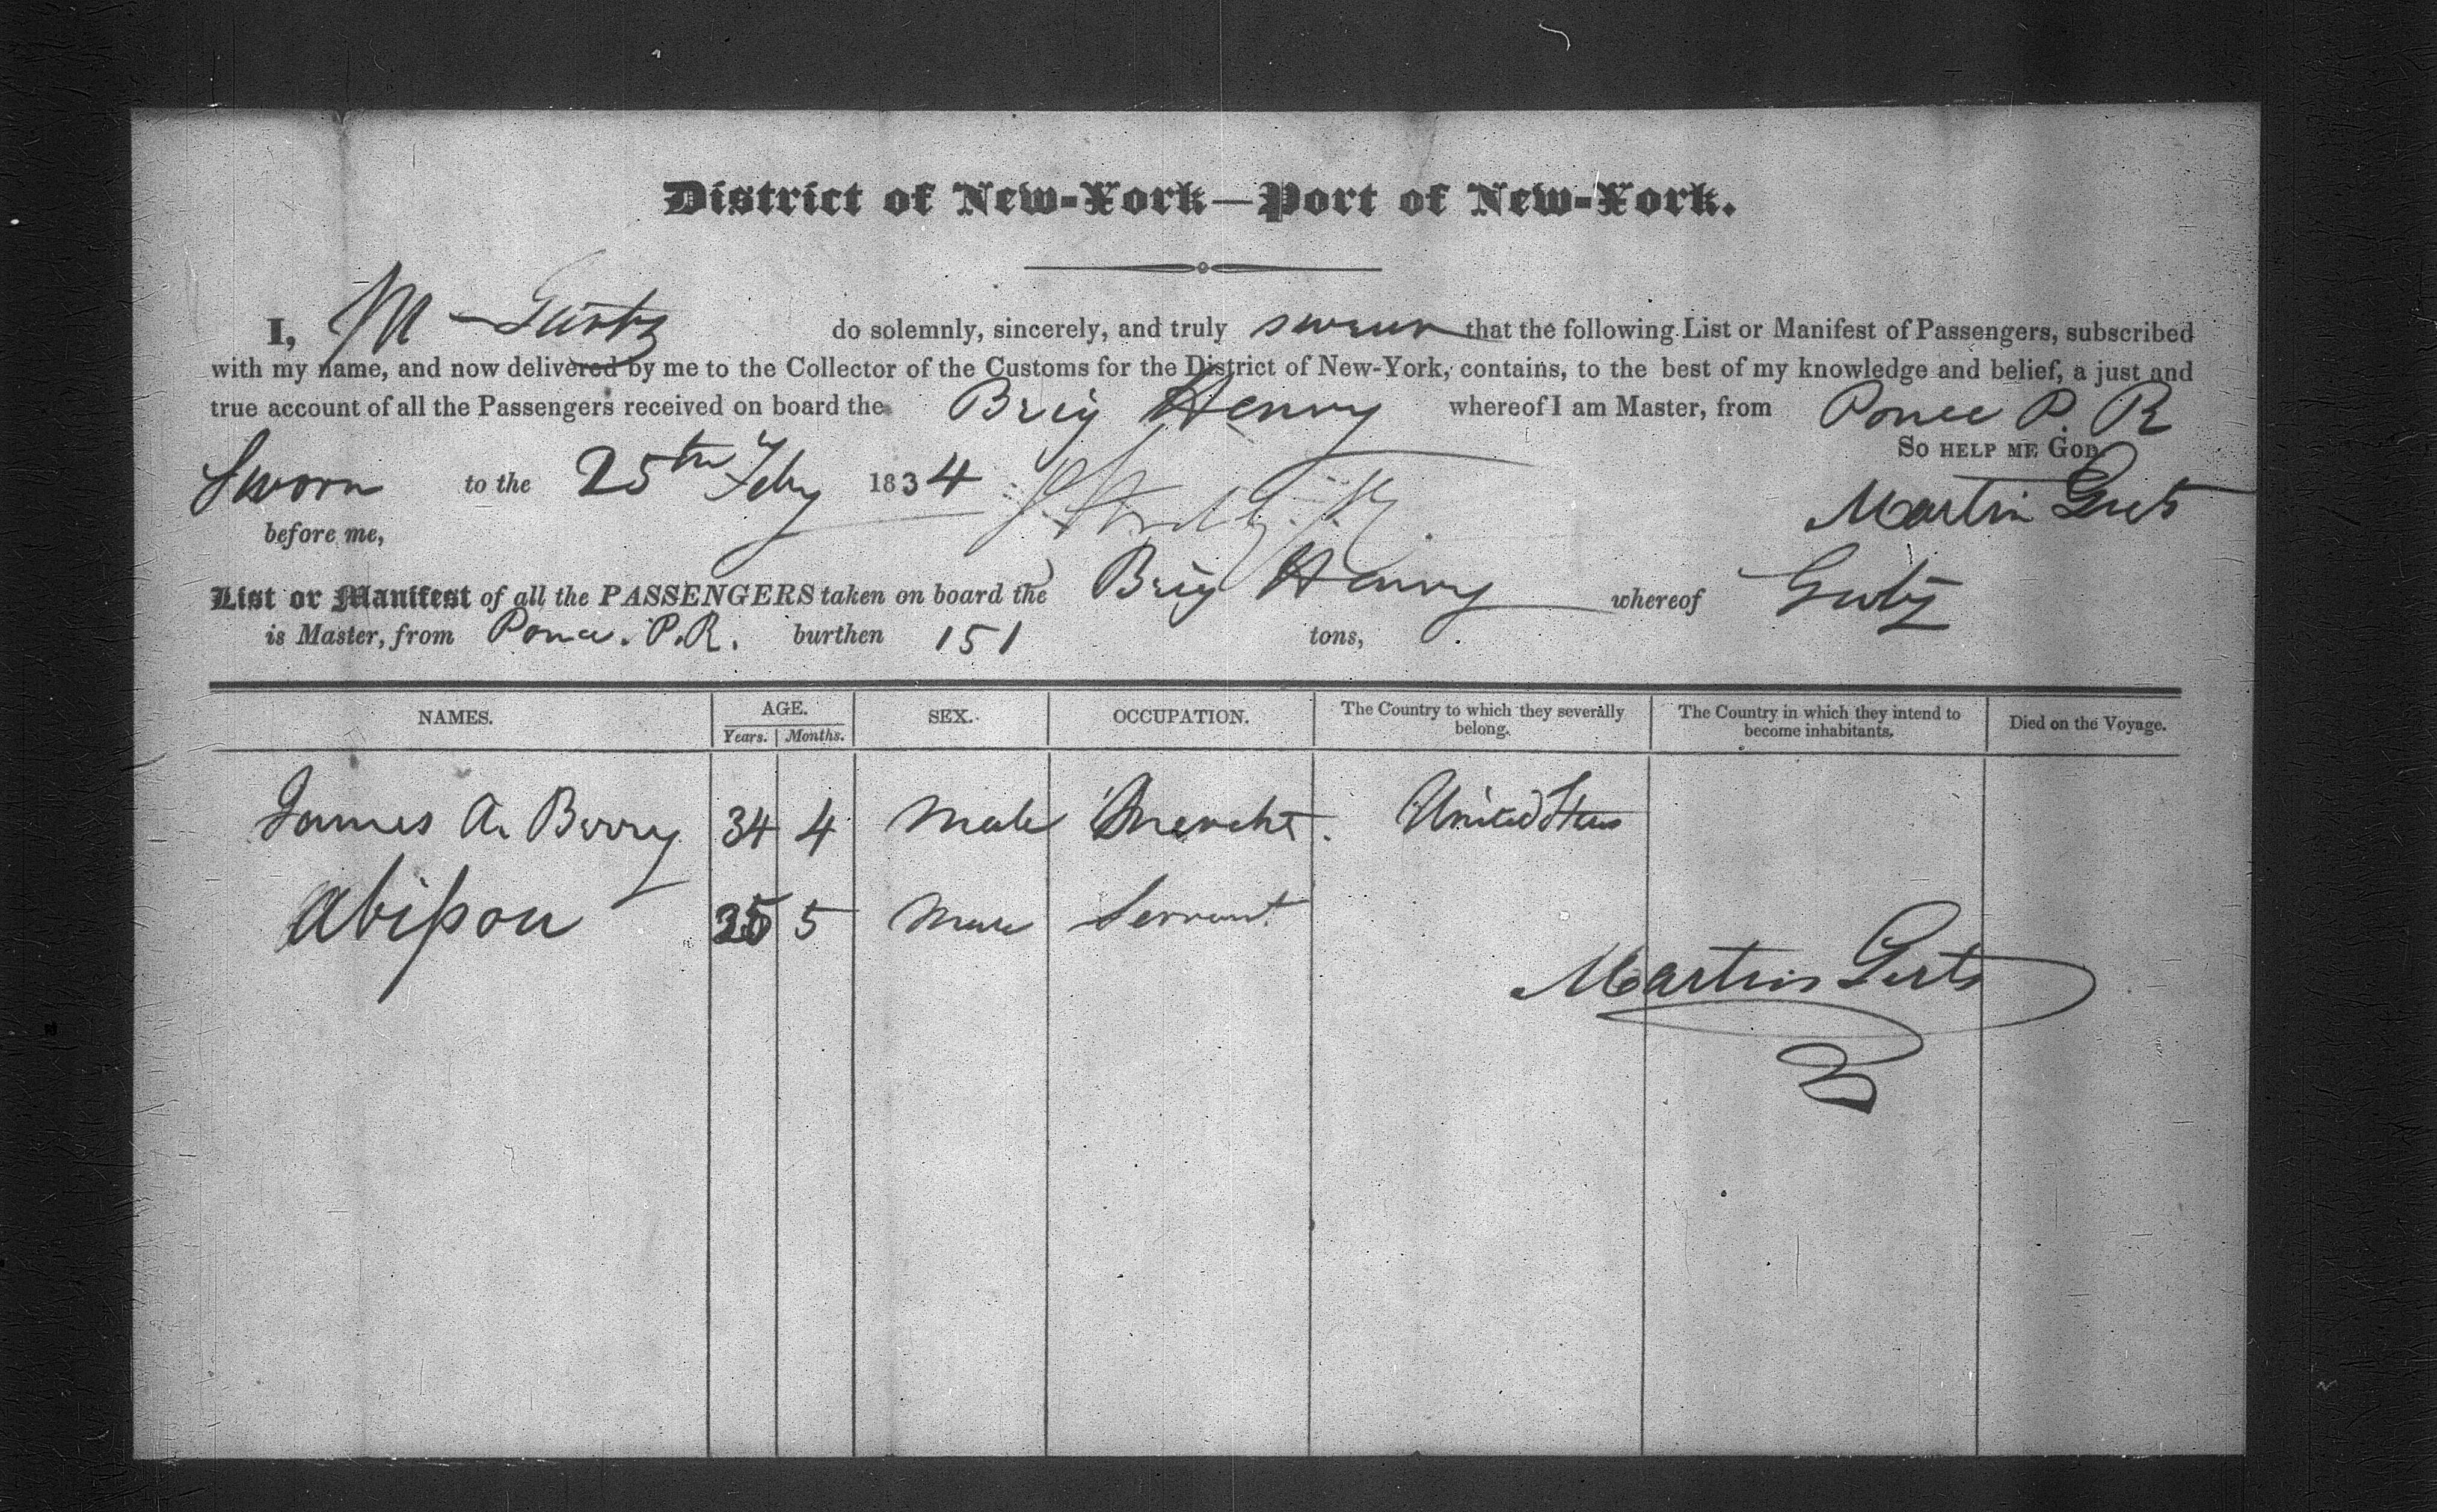 District of New-York—Port of New-York.
I, M do solemnly, sincerely, and truly swear that the following List or Manifest of Passengers, subscribed
with my name, and now delivered by me to the Collector of the Customs for the District of New-York, contains, to the best of my knowledge and belief, a just and
true account of all the Passengers received on board the Brig Henry whereof I am Master, from Ponce P. R
So HELP ME GOD
Sworn to the 25th Feby 1834
Martin
before me,
List or Manifest of all the PASSENGERS taken on board the Brig Henry whereof
is Master, from Ponce. P.R. burthen 151 tons,
NAMES. AGE. SEX. OCCUPATION. The Country to which they severally belong. The Country in which they intend to become inhabitants. Died on the Voyage.
Years. Months.
James A. Berry 34 4 Male Mercht. United States
5 Male Servant
Martin